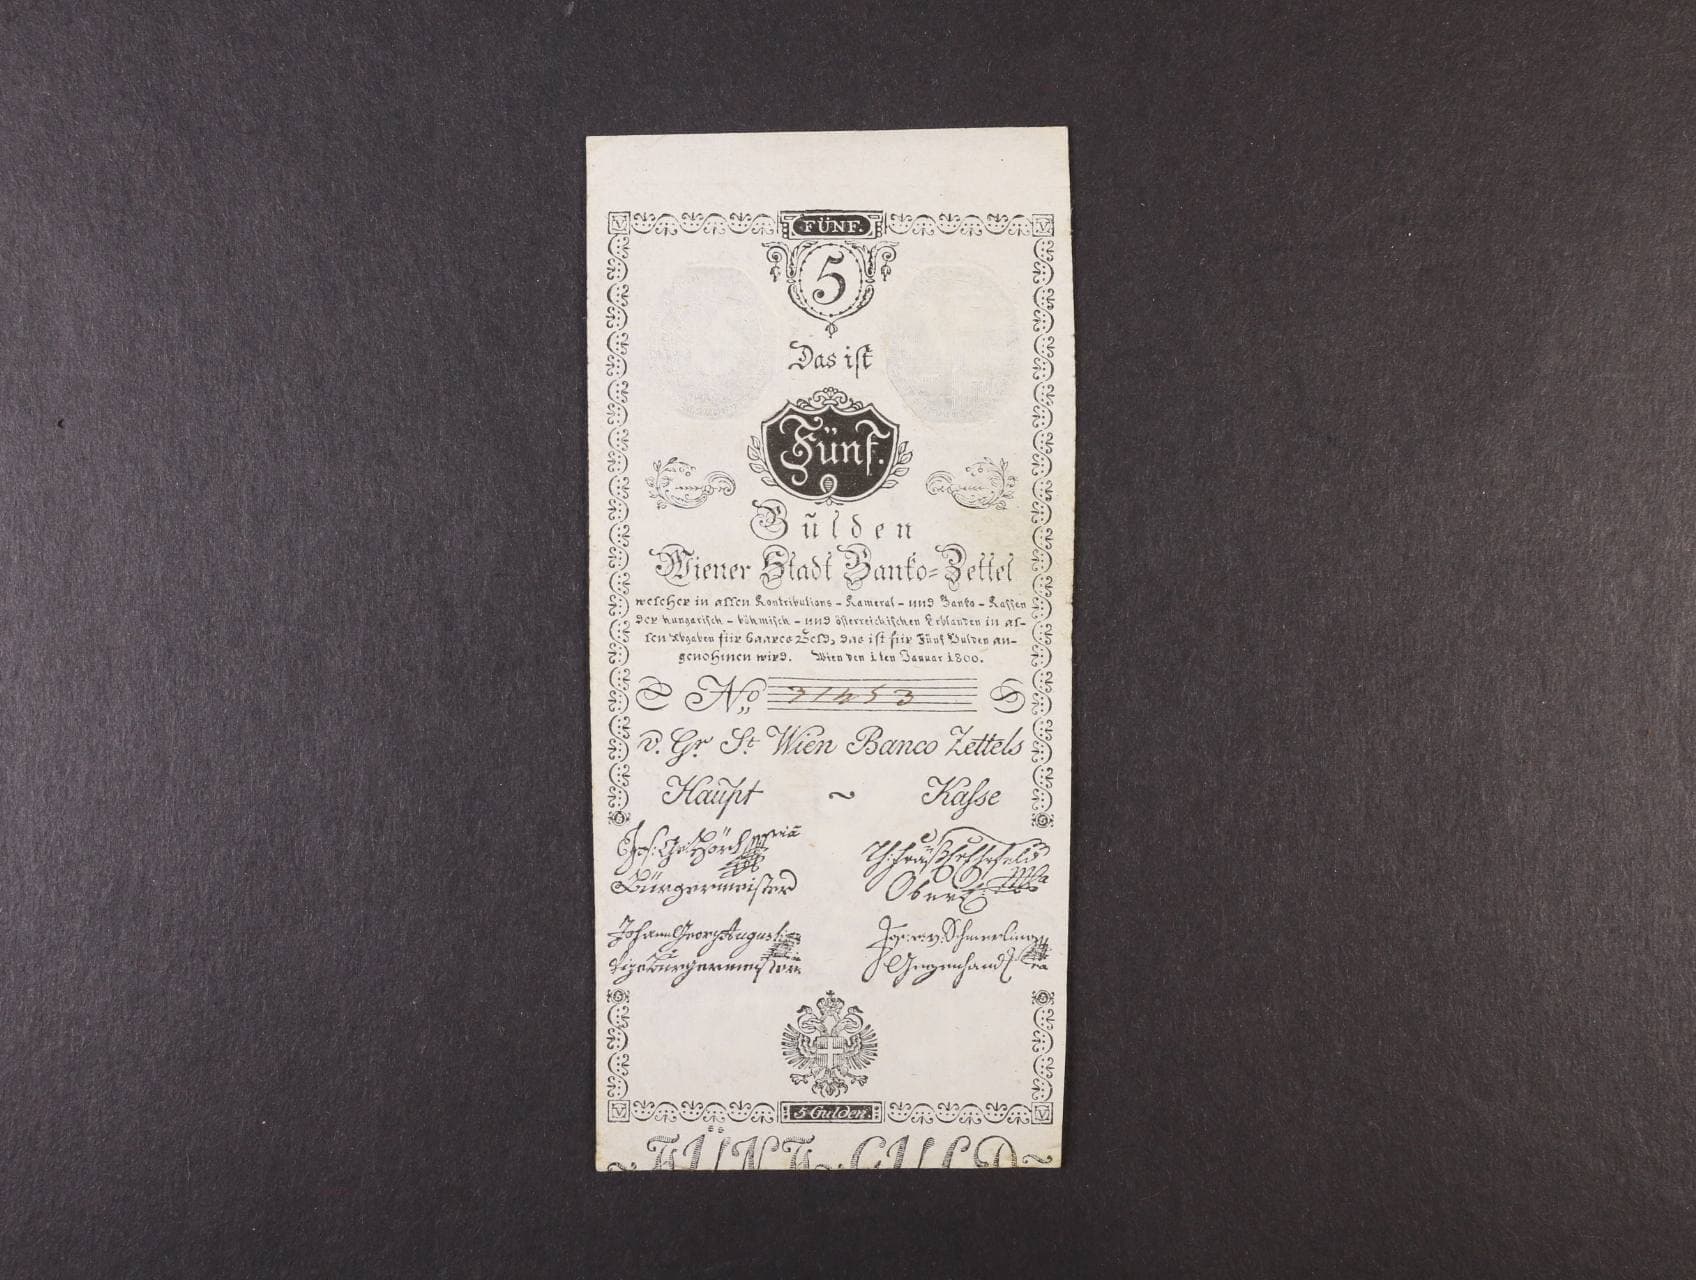 FÜNF.
5
Das ist
Fünf.
Gulden
Wiener Stadt Banko=Zettel
welcher in allen Kontributions - Kameral - und Banko - Kassen
der hungarisch - böhmisch - und österreichischen Erblanden in al-
len Abgaben für baares Geld, das ist für Fünf Gulden an-
genohmen wird. Wien den 1ten Januar 1800.
No 31453
v. Gr. St. Wien Banco Zettels
Haupt ~ Kasse
Bürgermeister
Johann Georg Augusti
Vize Bürgermeister
Schmerling
Gegenhandl
V 5 Gulden. V
FÜNF GULD